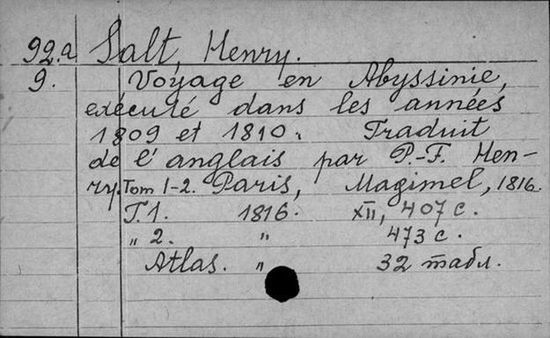 92.a Salt, Henry.
9. Voyage en Abyssinie,
exécuté dans les années
1809 et 1810. Traduit
de l'anglais par P.-F. Hen-
ry. Tom 1-2. Paris, Magimel, 1816.
T.1. 1816. XII, 407 с.
„ 2. „ 473 с.
Atlas. „ 32 табл.